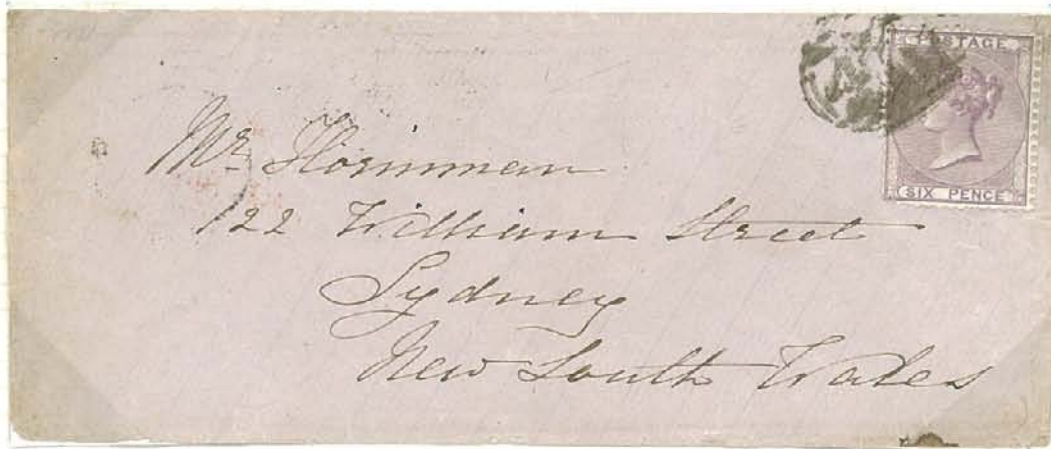 POSTAGE
SIX PENCE
Mr. Horniman
122 William Street
Sydney
New South Wales